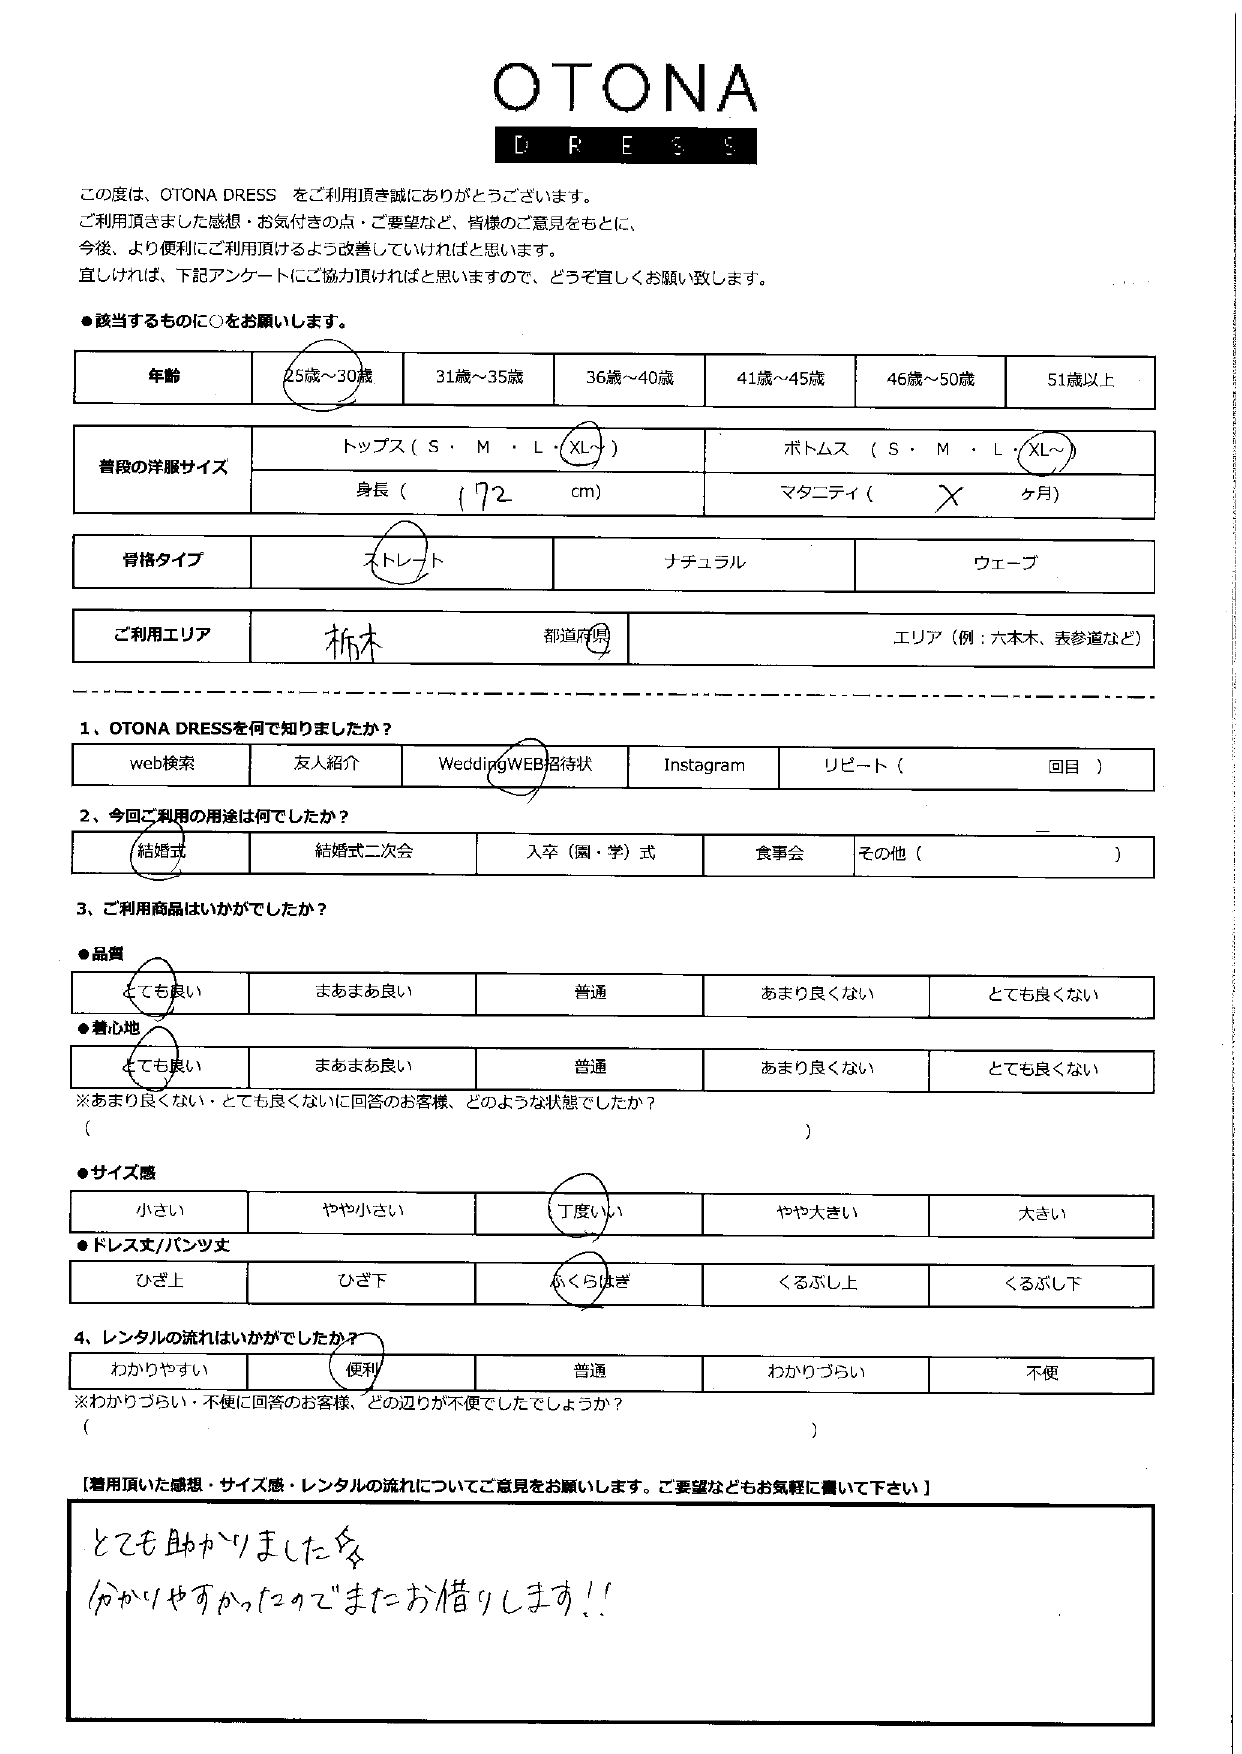 OTONA
DRESS
この度は、OTONA DRESS をご利用頂き誠にありがとうございます。
ご利用頂きました感想・お気付きの点・ご要望など、皆様のご意見をもとに、
今後、より便利にご利用頂けるよう改善していければと思います。
宜しければ、下記アンケートにご協力頂ければと思いますので、どうぞ宜しくお願い致します。
●該当するものに○をお願いします。
年齢 25歳～30歳 31歳～35歳 36歳～40歳 41歳～45歳 46歳～50歳 51歳以上
普段の洋服サイズ トップス ( S ・ M ・ L ・ XL～ ) ボトムス ( S ・ M ・ L ・ XL～ )
身長 ( 172 cm) マタニティ ( X ヶ月)
骨格タイプ ストレート ナチュラル ウェーブ
ご利用エリア 栃木 都道府県 エリア（例：六本木、表参道など）
1、OTONA DRESSを何で知りましたか？
web検索 友人紹介 WeddingWEB招待状 Instagram リピート ( 回目 )
2、今回ご利用の用途は何でしたか？
結婚式 結婚式二次会 入卒（園・学）式 食事会 その他 ( )
3、ご利用商品はいかがでしたか？
●品質
とても良い まあまあ良い 普通 あまり良くない とても良くない
●着心地
とても良い まあまあ良い 普通 あまり良くない とても良くない
※あまり良くない・とても良くないに回答のお客様、どのような状態でしたか？
( )
●サイズ感
小さい やや小さい 丁度いい やや大きい 大きい
●ドレス丈/パンツ丈
ひざ上 ひざ下 ふくらはぎ くるぶし上 くるぶし下
4、レンタルの流れはいかがでしたか？
わかりやすい 便利 普通 わかりづらい 不便
※わかりづらい・不便に回答のお客様、どの辺りが不便でしたでしょうか？
( )
【着用頂いた感想・サイズ感・レンタルの流れについてご意見をお願いします。ご要望などもお気軽に書いて下さい 】
とても助かりました
分かりやすかったのでまたお借りします!!